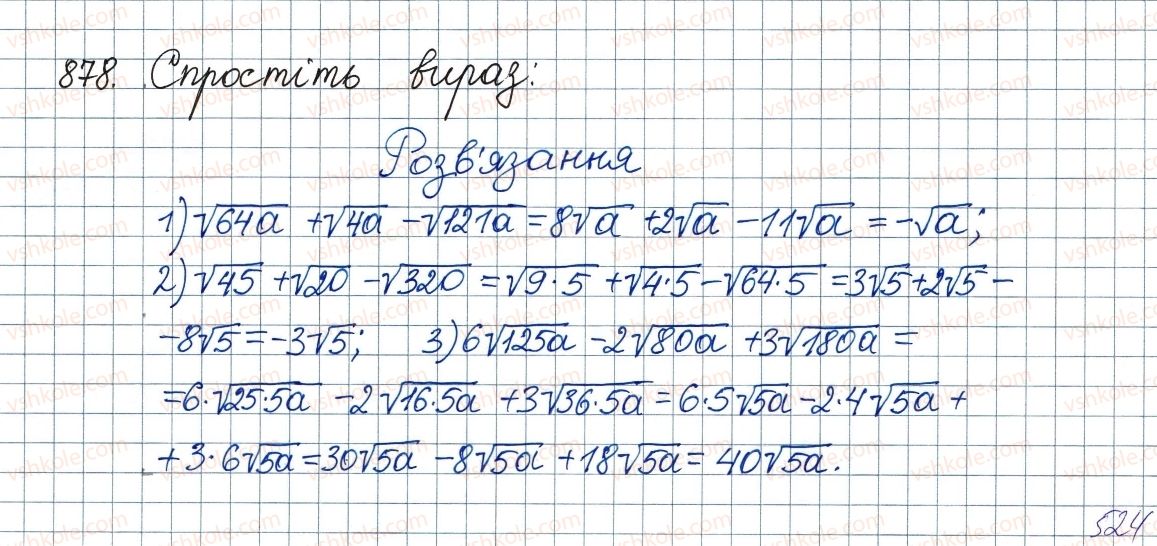 878. Спростіть вираз:
Розв'язання
1) √64a + √4a - √121a = 8√a + 2√a - 11√a = -√a;
2) √45 + √20 - √320 = √9·5 + √4·5 - √64·5 = 3√5 + 2√5 -
- 8√5 = -3√5; 3) 6√125a - 2√80a + 3√180a =
= 6·√25·5a - 2√16·5a + 3√36·5a = 6·5√5a - 2·4√5a +
+ 3·6√5a = 30√5a - 8√5a + 18√5a = 40√5a.
524